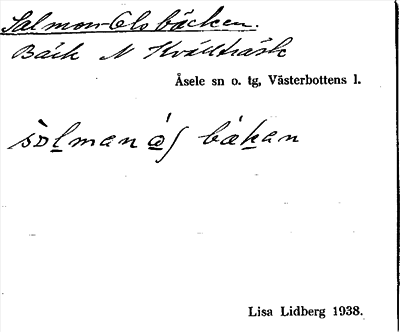 Salmon-Olsbäcken.
Bäck N Kvällträsk
Åsele sn o. tg, Västerbottens l.
bäkan
Lisa Lidberg 1938.